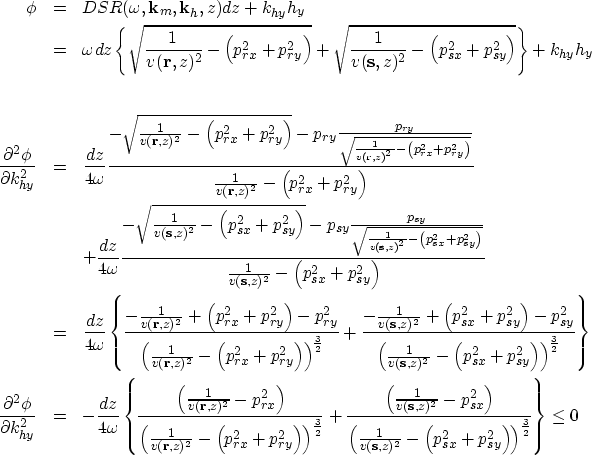 \phi = DSR(\omega, \mathbf{k}_m, \mathbf{k}_h, z)dz + k_{hy}h_y
= \omega\, dz \left\{ \sqrt{\frac{1}{v(\mathbf{r},z)^2} - \left(p_{rx}^2 + p_{ry}^2\right)} + \sqrt{\frac{1}{v(\mathbf{s},z)^2} - \left(p_{sx}^2 + p_{sy}^2\right)} \right\} + k_{hy}h_y
\frac{\partial^2\phi}{\partial k_{hy}^2} = \frac{dz}{4\omega} \frac{-\sqrt{\frac{1}{v(\mathbf{r},z)^2} - \left(p_{rx}^2 + p_{ry}^2\right)} - p_{ry}\frac{p_{ry}}{\sqrt{\frac{1}{v(\mathbf{r},z)^2} - \left(p_{rx}^2 + p_{ry}^2\right)}}}{\frac{1}{v(\mathbf{r},z)^2} - \left(p_{rx}^2 + p_{ry}^2\right)}
+ \frac{dz}{4\omega} \frac{-\sqrt{\frac{1}{v(\mathbf{s},z)^2} - \left(p_{sx}^2 + p_{sy}^2\right)} - p_{sy}\frac{p_{sy}}{\sqrt{\frac{1}{v(\mathbf{s},z)^2} - \left(p_{sx}^2 + p_{sy}^2\right)}}}{\frac{1}{v(\mathbf{s},z)^2} - \left(p_{sx}^2 + p_{sy}^2\right)}
= \frac{dz}{4\omega} \left\{ \frac{-\frac{1}{v(\mathbf{r},z)^2} + \left(p_{rx}^2 + p_{ry}^2\right) - p_{ry}^2}{\left(\frac{1}{v(\mathbf{r},z)^2} - \left(p_{rx}^2 + p_{ry}^2\right)\right)^{\frac{3}{2}}} + \frac{-\frac{1}{v(\mathbf{s},z)^2} + \left(p_{sx}^2 + p_{sy}^2\right) - p_{sy}^2}{\left(\frac{1}{v(\mathbf{s},z)^2} - \left(p_{sx}^2 + p_{sy}^2\right)\right)^{\frac{3}{2}}} \right\}
\frac{\partial^2\phi}{\partial k_{hy}^2} = -\frac{dz}{4\omega} \left\{ \frac{\left(\frac{1}{v(\mathbf{r},z)^2} - p_{rx}^2\right)}{\left(\frac{1}{v(\mathbf{r},z)^2} - \left(p_{rx}^2 + p_{ry}^2\right)\right)^{\frac{3}{2}}} + \frac{\left(\frac{1}{v(\mathbf{s},z)^2} - p_{sx}^2\right)}{\left(\frac{1}{v(\mathbf{s},z)^2} - \left(p_{sx}^2 + p_{sy}^2\right)\right)^{\frac{3}{2}}} \right\} \leq 0